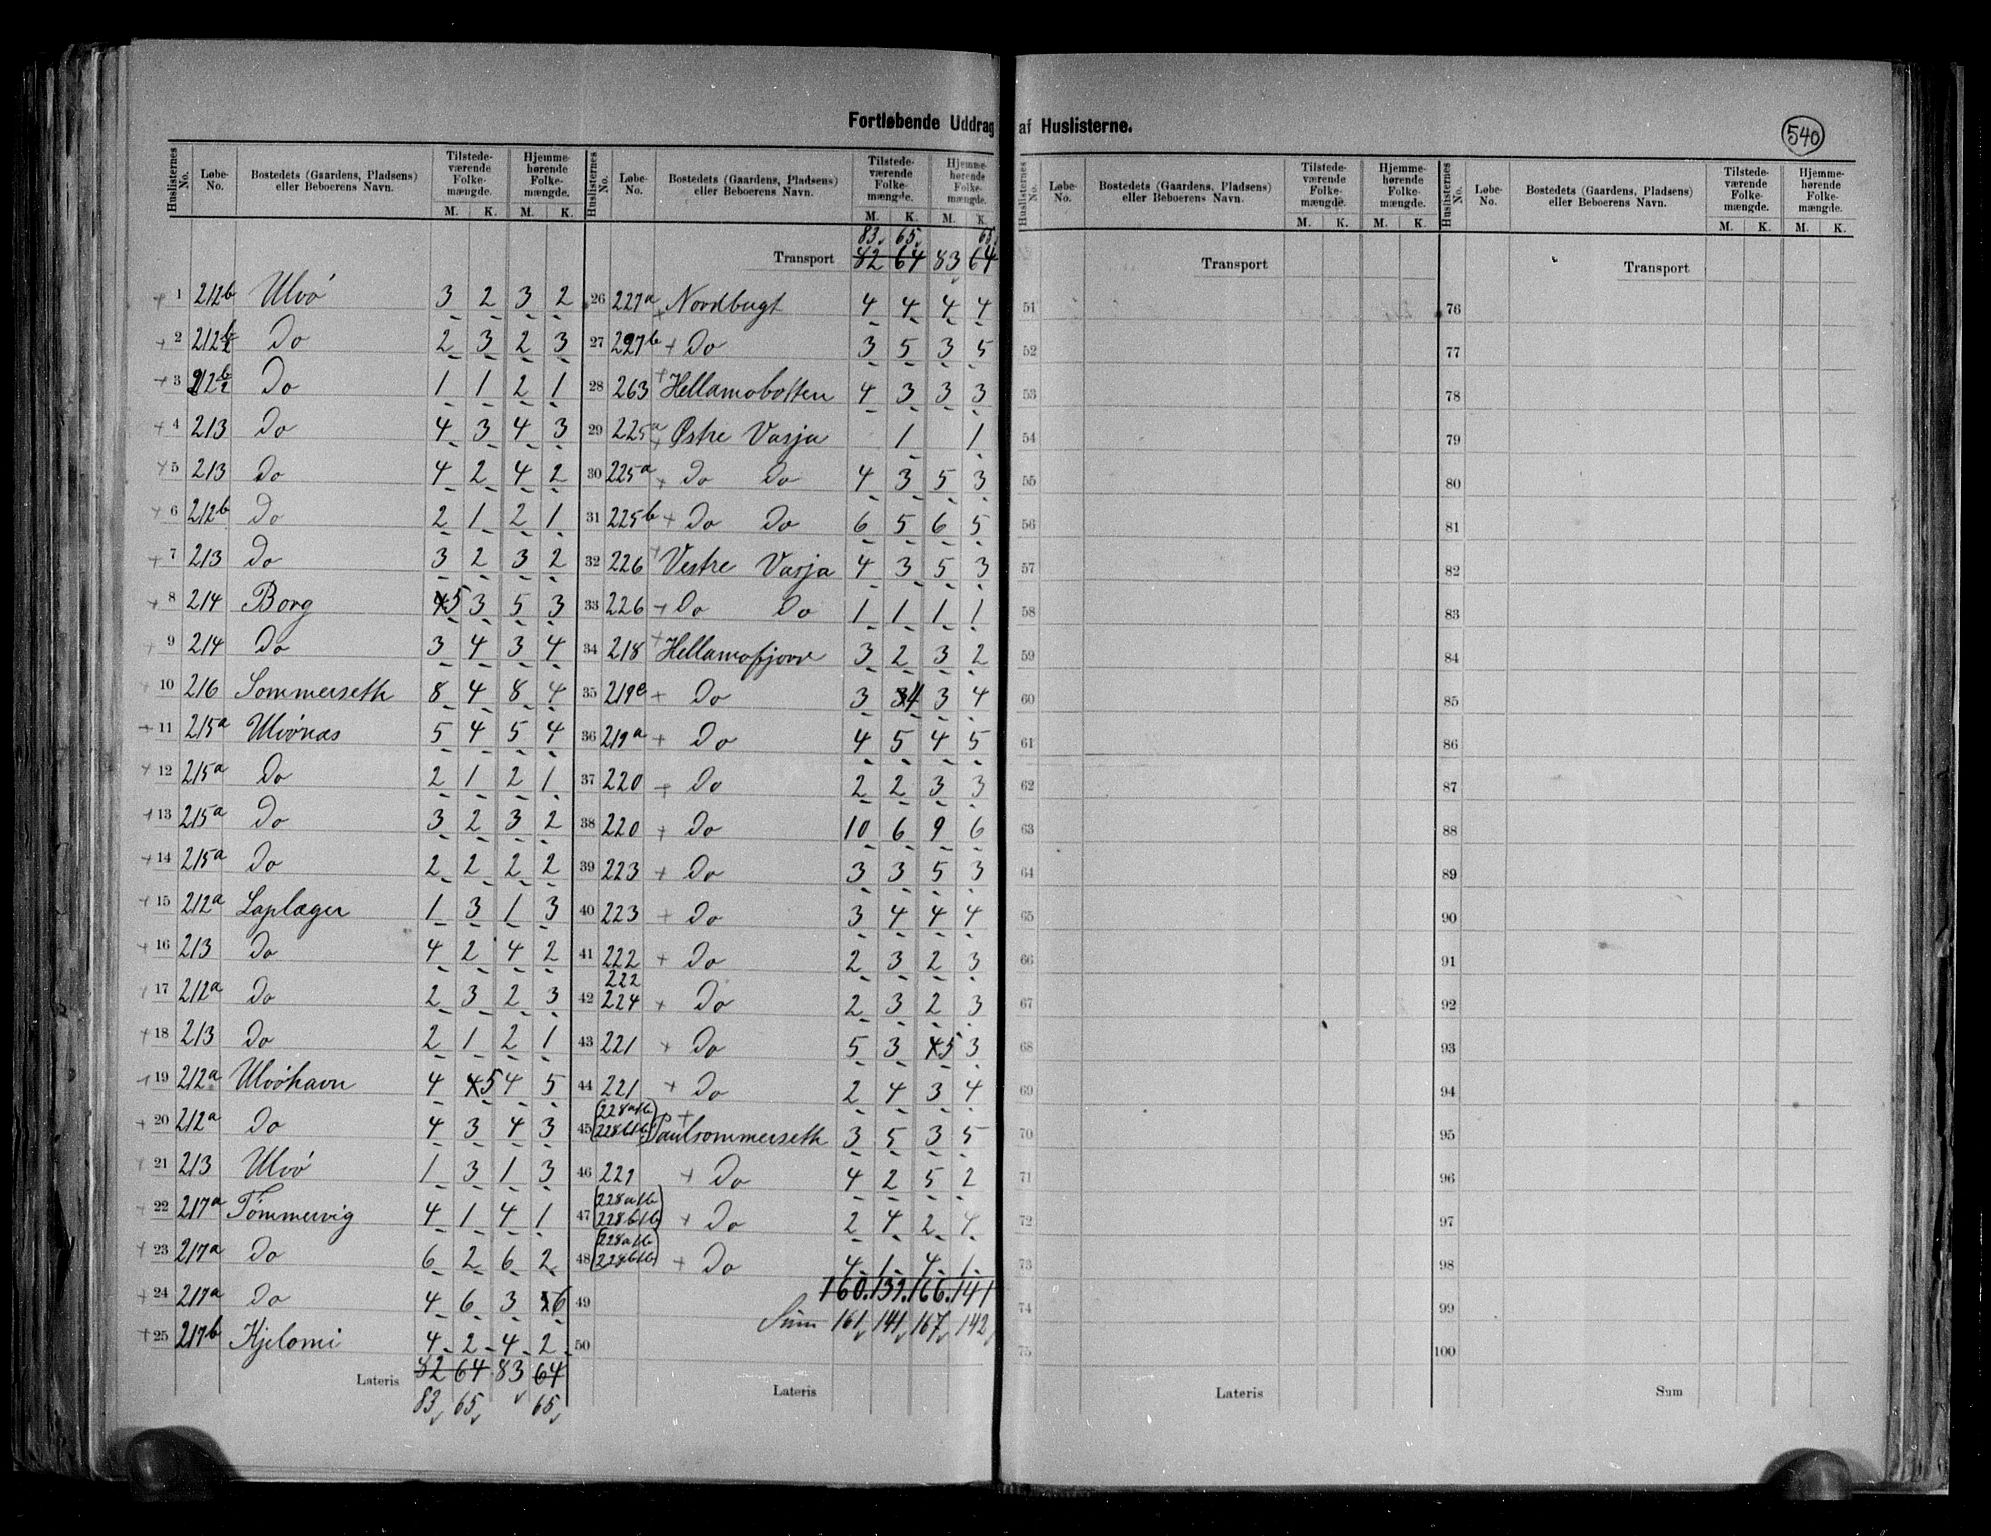 Fortløbende Uddrag af Huslisterne.
540
Huslisternes No. Løbe-No. Bostedets (Gaardens, Pladsens) eller Beboerens Navn. Tilstedeværende Folkemængde. Hjemmehørende Folkemængde.
M. K. M. K.
1 212b Ulvø 3 2 3 2
2 212b/2 Do 2 3 2 3
3 212b/2 Do 1 1 2 1
4 213 Do 4 3 4 3
5 213 Do 4 2 4 2
6 212b Do 2 1 2 1
7 213 Do 3 2 3 2
8 214 Borg 5 3 5 3
9 214 Do 3 4 3 4
10 216 Sommerseth 8 4 8 4
11 215a Ulvønæs 5 4 5 4
12 215a Do 2 1 2 1
13 215a Do 3 2 3 2
14 215a Do 2 2 2 2
15 212a Laplæger 1 3 1 3
16 213 Do 4 2 4 2
17 212a Do 2 3 2 3
18 213 Do 2 1 2 1
19 212a Ulvøhavn 4 5 4 5
20 212a Do 4 3 4 3
21 213 Ulvø 1 3 1 3
22 217a Tømmervig 4 1 4 1
23 217a Do 6 2 6 2
24 217a Do 4 6 3 6
25 217b Kjelomi 4 2 4 2
Lateris 82 64 83 64
83 65 65
Huslisternes No. Løbe-No. Bostedets (Gaardens, Pladsens) eller Beboerens Navn. Tilstedeværende Folkemængde. Hjemmehørende Folkemængde.
M. K. M. K.
83 65 65
Transport 82 64 83 64
26 227a Nordbugt 4 4 4 4
27 227b Do 3 5 3 5
28 263 Hellamobotten 4 3 3 3
29 225a Østre Vasja 1 1
30 225a Do Do 4 3 5 3
31 225b Do Do 6 5 6 5
32 226 Vestre Vasja 4 3 5 3
33 226 Do Do 1 1 1 1
34 218 Hellamofjord 3 2 3 2
35 219 Do 3 4 3 4
36 219a Do 4 5 4 5
37 220 Do 2 2 3 3
38 220 Do 10 6 9 6
39 223 Do 3 3 5 3
40 223 Do 3 4 4 4
41 222 Do 2 3 2 3
222
42 224 Do 2 3 2 3
43 221 Do 5 3 5 3
44 221 Do 2 4 3 4
228a/b
45 228b/b Paulsommerseth 3 5 3 5
46 221 Do 4 2 5 2
228a/b
47 228b/b Do 2 4 2 4
228a/b
48 228b/b Do 4 1 4 1
160 139 166 141
49
Sum 161 141 167 142
50
Lateris
Huslisternes No. Løbe-No. Bostedets (Gaardens, Pladsens) eller Beboerens Navn. Tilstedeværende Folkemængde. Hjemmehørende Folkemængde.
M. K. M. K.
Transport
51
52
53
54
55
56
57
58
59
60
61
62
63
64
65
66
67
68
69
70
71
72
73
74
75
Lateris
Huslisternes No. Løbe-No. Bostedets (Gaardens, Pladsens) eller Beboerens Navn. Tilstedeværende Folkemængde. Hjemmehørende Folkemængde.
M. K. M. K.
Transport
76
77
78
79
80
81
82
83
84
85
86
87
88
89
90
91
92
93
94
95
96
97
98
99
100
Sum